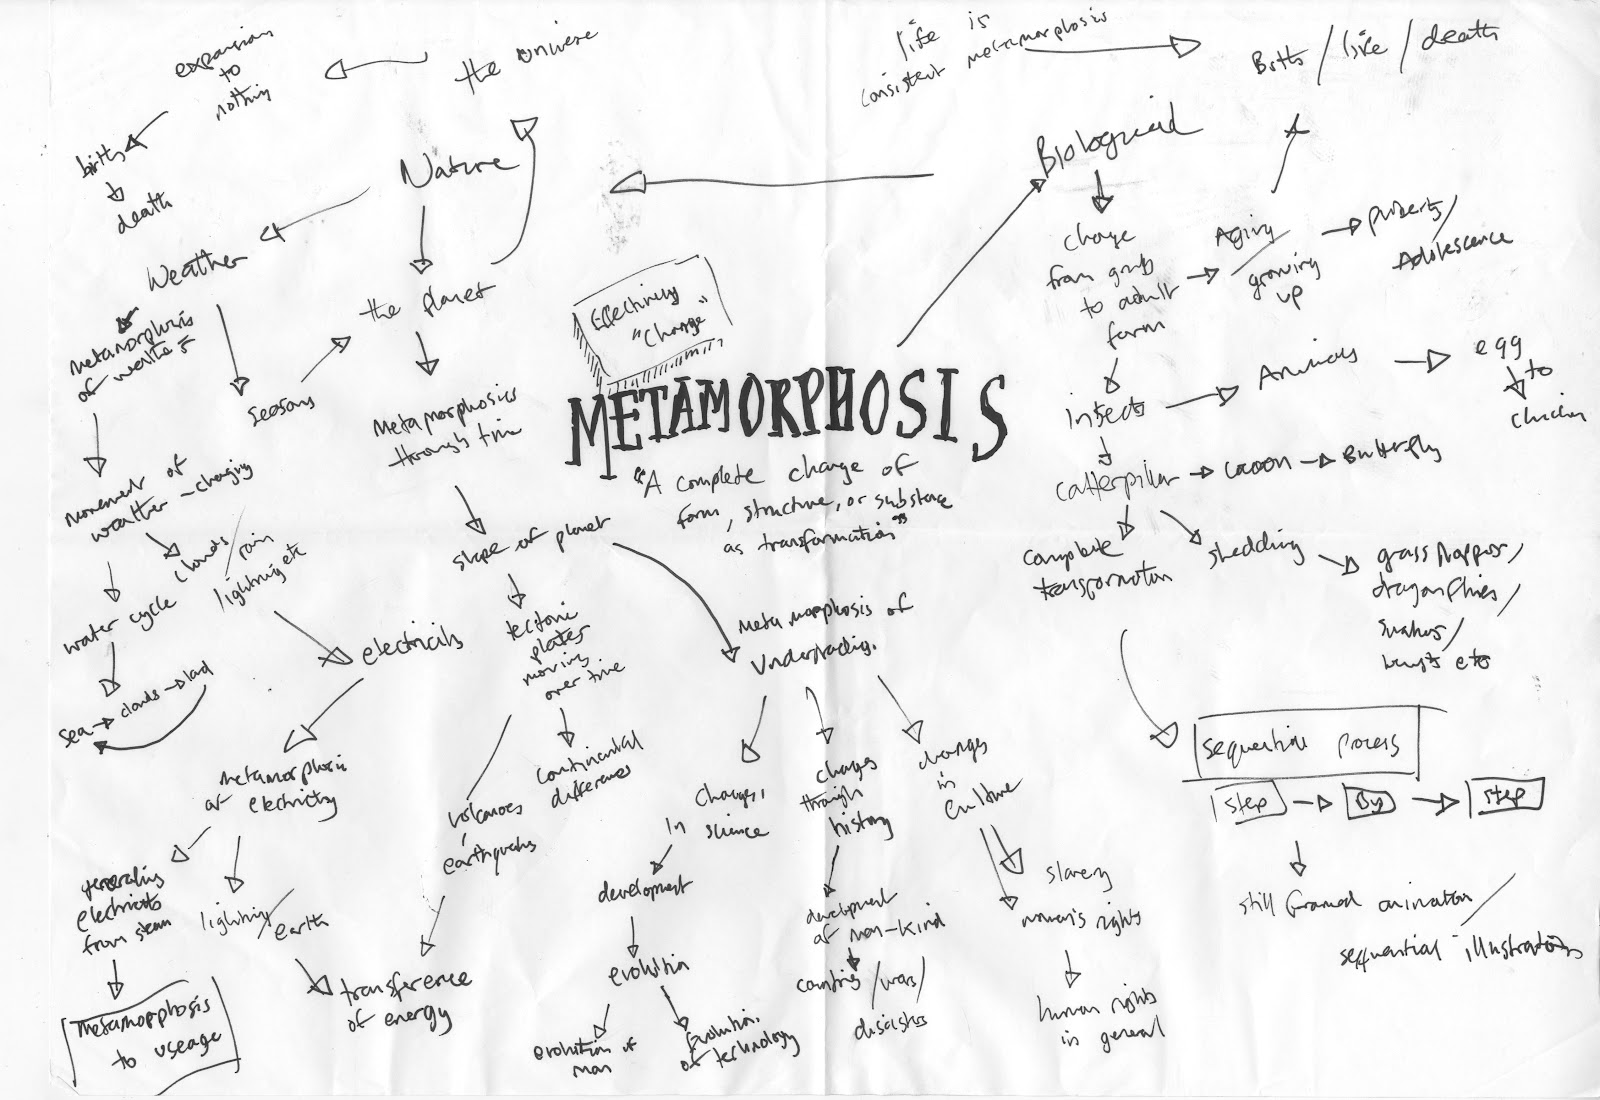 expansion
to
nothing
the universe
birth
death
Nature
Weather
the planet
metamorphosis
of
seasons
Metamorphosis
through time
movement of
weather - changing
clouds / rain
lightning etc
water cycle
sea → clouds → land
electricity
metamorphosis
of electricity
generating
electricity
from steam
metamorphosis
to useage
lightning /
earth
transference
of energy
shape of planet
tectonic
plates
moving
over time
continental
differences
volcanoes
earthquakes
Effectively
"Change"
METAMORPHOSIS
"A complete change of
form, structure, or substance
as transformation"
Metamorphosis of
Understanding.
Changes
in science
development
evolution
evolution of
man
Evolution
of technology
changes
through
history
development
of man-kind
countries / wars /
disasters
changes
in
culture
slavery
women's rights
human rights
in general
life is
consistent metamorphosis
Birth / life / death
Biological
change
from grub
to adult
form
Aging /
growing
up
puberty /
Adolescence
insects
Animals
egg
to
chicken
caterpillar → cocoon → Butterfly
complete
transformation
shedding
grasshoppers /
dragonflies /
snakes /
etc
sequential process
step → By → step
still framed animation /
sequential illustrations